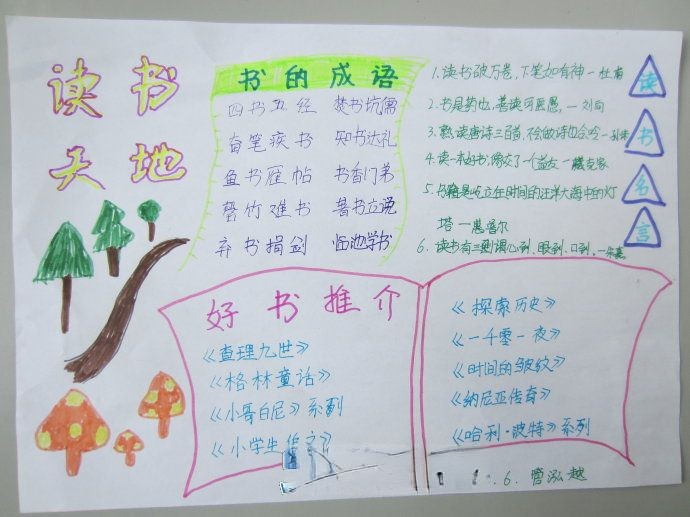 读书
天地
书的成语
四书五经 焚书坑儒
奋笔疾书 知书达礼
鱼书雁帖 书香门弟
罄竹难书 著书立说
弃书捐剑 临池学书
1.读书破万卷,下笔如有神一杜甫
2.书是药也,善读可医愚,一刘向
3.熟读唐诗三百首,不会做诗也会吟一孙洙
4.读一本好书,像交了一个益友一臧克家
5.书籍是屹立在时间的汪洋大海中的灯
塔一惠普尔
6.读书有三到谓心到、眼到、口到,一朱熹
读书名言
好书推介
《查理九世》
《格林童话》
《小哥白尼》系列
《小学生作文》
《探索历史》
《一千零一夜》
《时间的皱纹》
《纳尼亚传奇》
《哈利·波特》系列
.6.曾泓越